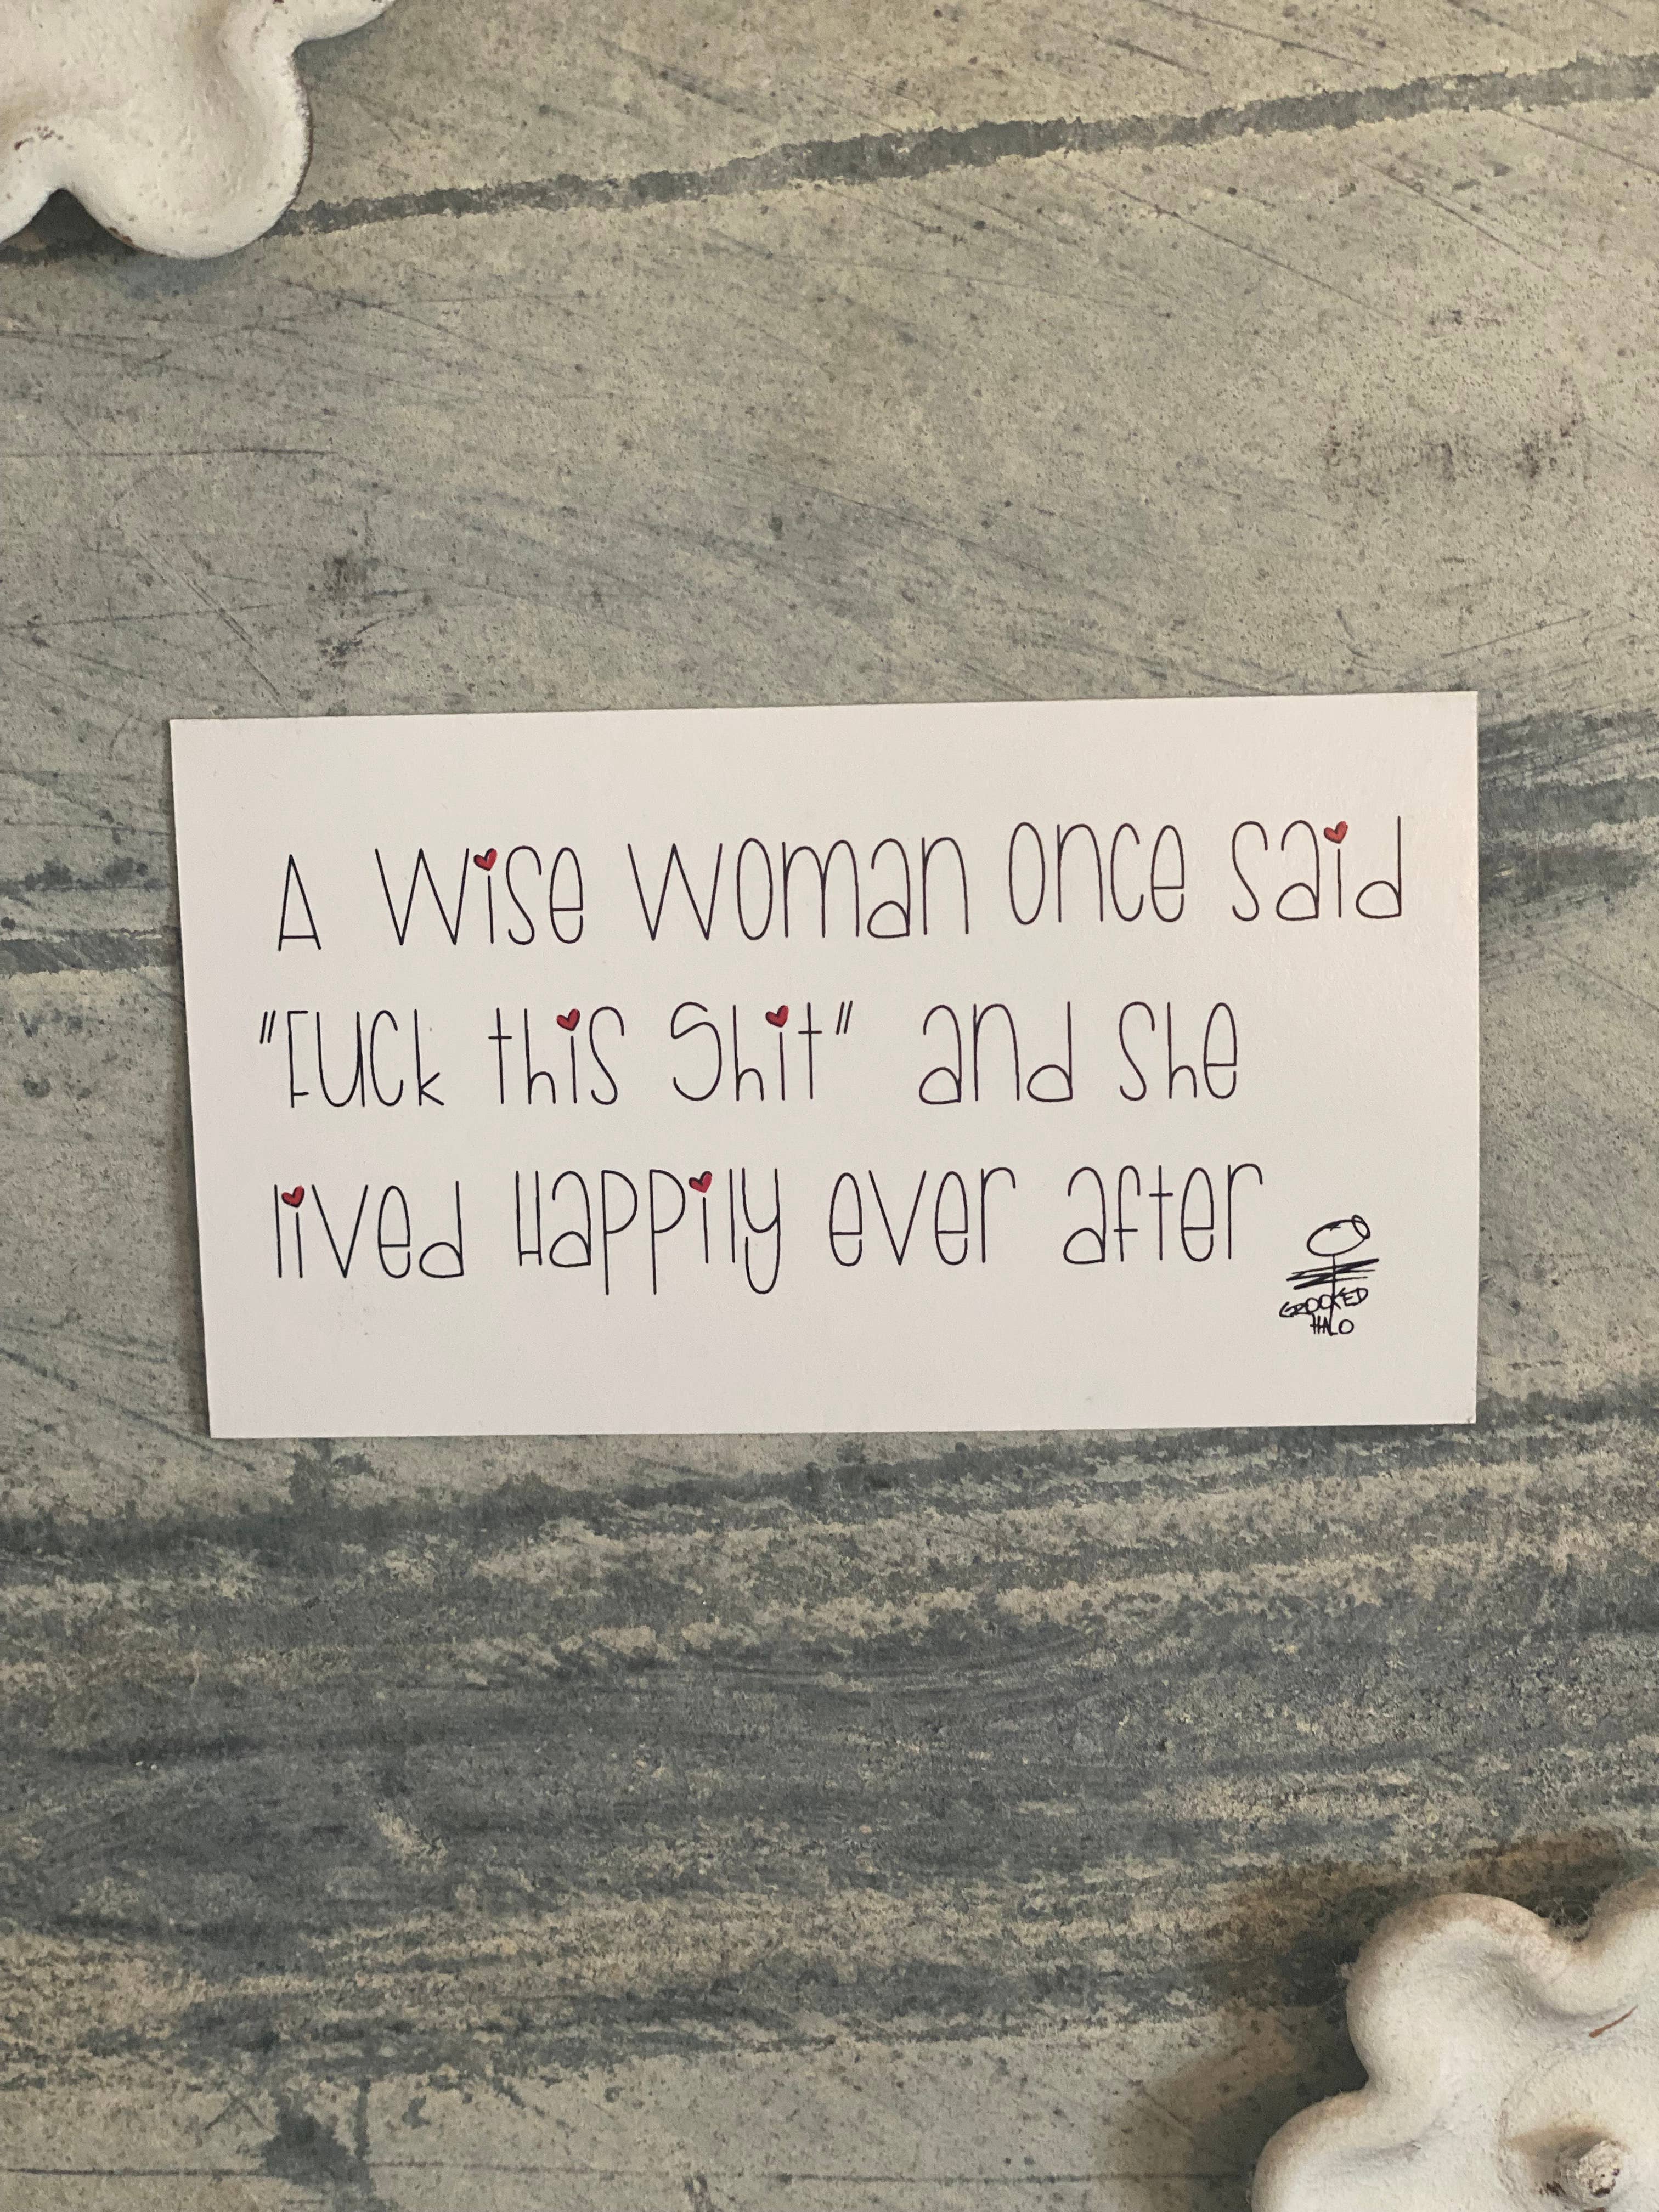 A Wise Woman Once Said
"Fuck this Shit" and She
lived Happily ever after
CROOKED
HALO